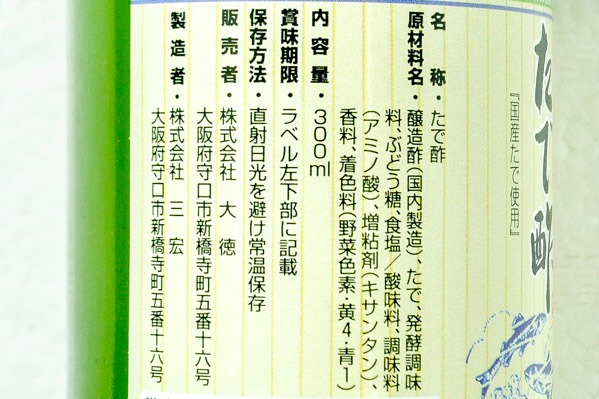 たで酢
『国産たで使用』
名称・たで酢
原材料名・醸造酢(国内製造)、たで、発酵調味
料、ぶどう糖、食塩/酸味料、調味料
(アミノ酸)、増粘剤(キサンタン)、
香料、着色料(野菜色素・黄4・青1)
内容量・300ml
賞味期限・ラベル左下部に記載
保存方法・直射日光を避け常温保存
販売者・株式会社 大徳
大阪府守口市新橋寺町五番十六号
製造者・株式会社 三宏
大阪府守口市新橋寺町五番十六号